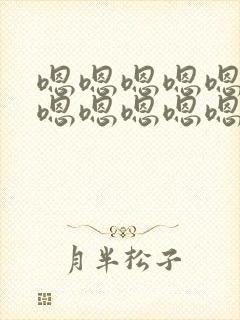 嗯嗯嗯嗯嗯
嗯嗯嗯嗯嗯
月半松子